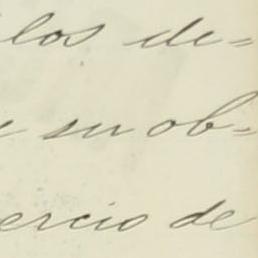 los de=
su ob=
ercio de